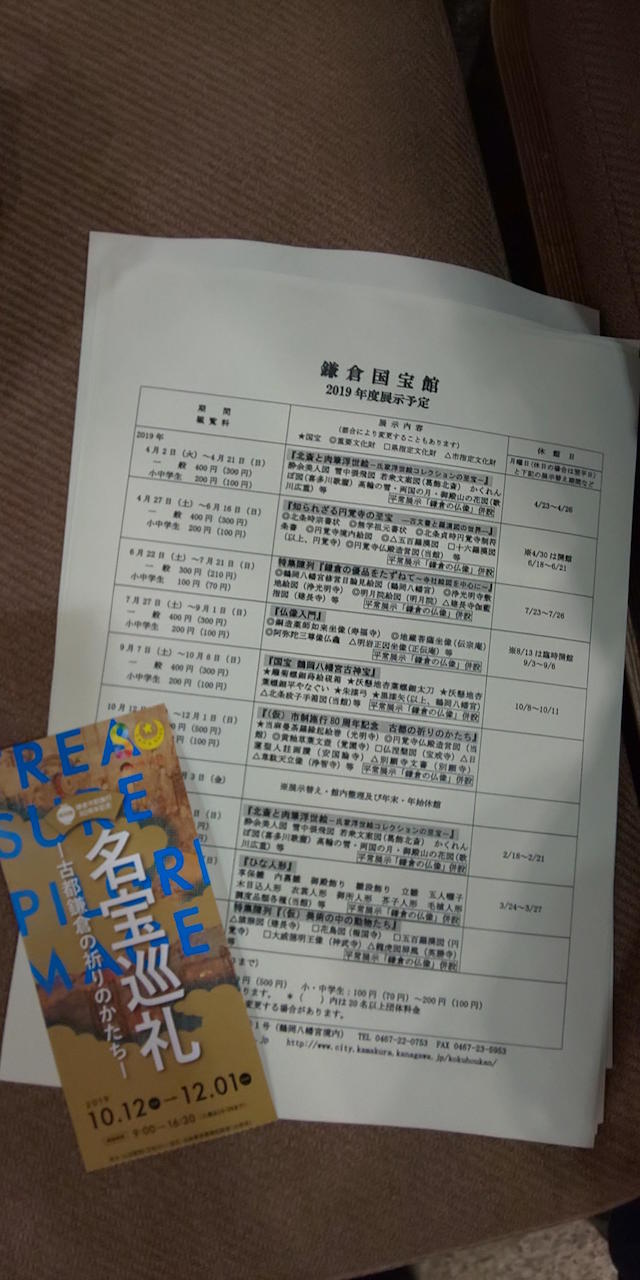 鎌倉国宝館
2019年度展示予定
期間
観覧料
展示内容
(都合により変更することもあります)
★国宝 ◎重要文化財 □県指定文化財 △市指定文化財
休館日
月曜日(休日の場合は翌平日)
と下記の展示替え期間など
2019年
4月2日(火)~4月21日(日)
一般 400円(300円)
小中学生 200円(100円)
『北斎と肉筆浮世絵－氏家浮世絵コレクションの至宝－』
酔余美人図 雪中張飛図 若衆文案図(葛飾北斎) かくれん
ぼ図(喜多川歌麿) 高輪の雪・両国の月・御殿山の花図(歌
川広重) 等
平常展示「鎌倉の仏像」併設
4/23~4/26
4月27日(土)~6月16日(日)
一般 400円(300円)
小中学生 200円(100円)
『知られざる円覚寺の至宝 －古文書と羅漢図の世界－』
◎北条時宗書状 ◎無学祖元書状 ◎北条貞時円覚寺制符
条書 ◎円覚寺境内絵図 ◎△五百羅漢図 □十六羅漢図
(以上、円覚寺) ◎円覚寺仏殿造営図(当館) 等
平常展示「鎌倉の仏像」併設
※4/30は開館
6/18~6/21
6月22日(土)~7月21日(日)
一般 300円(210円)
小中学生 100円(70円)
特集陳列『鎌倉の優品をたずねて～寺社絵図を中心に～』
◎鶴岡八幡宮修営目論見絵図(鶴岡八幡宮) ◎浄光明寺敷
地絵図(浄光明寺) ◎明月院絵図(明月院) △建長寺伽藍
指図(建長寺) 等
平常展示「鎌倉の仏像」併設
7/23~7/26
7月27日(土)~9月1日(日)
一般 400円(300円)
小中学生 200円(100円)
『仏像入門』
◎銅造薬師如来坐像(寿福寺) ◎地蔵菩薩坐像(伝宗庵)
◎阿弥陀三尊像仏龕 △明岩正因坐像(正伝庵) 等
平常展示「鎌倉の仏像」併設
※8/13は臨時開館
9/3~9/6
9月7日(土)~10月6日(日)
一般 400円(300円)
小中学生 200円(100円)
『国宝 鶴岡八幡宮古神宝』
★籬菊螺鈿蒔絵硯箱 ★沃懸地杏葉螺鈿太刀 ★沃懸地杏
葉螺鈿平やなぐい ★朱漆弓 ★黒漆矢(以上、鶴岡八幡宮)
△北条政子手箱図(当館) 等
平常展示「鎌倉の仏像」併設
10/8~10/11
10月12日 ~12月1日(日)
円(500円)
(100円)
『(仮)市制施行80周年記念 古都の祈りのかたち』
★当麻曼荼羅縁起絵巻(光明寺) ◎円覚寺仏殿造営図(当
館) ◎黄釉草葉文壺(覚園寺) □仏涅槃図(宝戒寺) △日
蓮聖人註画讃(安国論寺) △別願寺文書(別願寺)
△韋駄天立像(浄智寺) 等
平常展示「鎌倉の仏像」併設
月3日(金)
※展示替え・館内整理及び年末・年始休館
(日)
『北斎と肉筆浮世絵－氏家浮世絵コレクションの至宝－』
酔余美人図 雪中張飛図 若衆文案図(葛飾北斎) かくれん
ぼ図(喜多川歌麿) 高輪の雪・両国の月・御殿山の花図(歌
川広重) 等
平常展示「鎌倉の仏像」併設
2/18~2/21
『ひな人形』
享保雛 内裏雛 御殿飾り 雛段飾り 立雛 五人囃子
木目込人形 衣裳人形 御所人形 芥子人形 毛植人形
調度品類各種(当館) 等
平常展示「鎌倉の仏像」併設
3/24~3/27
特集陳列『(仮)美術の中の動物たち』
△猿猴図(建長寺) □花鳥図(報国寺) □五百羅漢図(円
覚寺) □大威徳明王像(神武寺) △龍虎図屏風(英勝寺)
等
平常展示「鎌倉の仏像」併設
まで)
円(500円) 小・中学生:100円(70円)～200円(100円)
ります。 *( )内は20名以上団体料金
変更する場合があります。
1号(鶴岡八幡宮境内) TEL 0467-22-0753 FAX 0467-23-5953
.jp http://www.city.kamakura.kanagawa.jp/kokuhoukan/
TREA
SURE
PILGRI
MAGE
名宝巡礼
－古都鎌倉の祈りのかたち－
2019
10.12－12.01
9:00－16:30